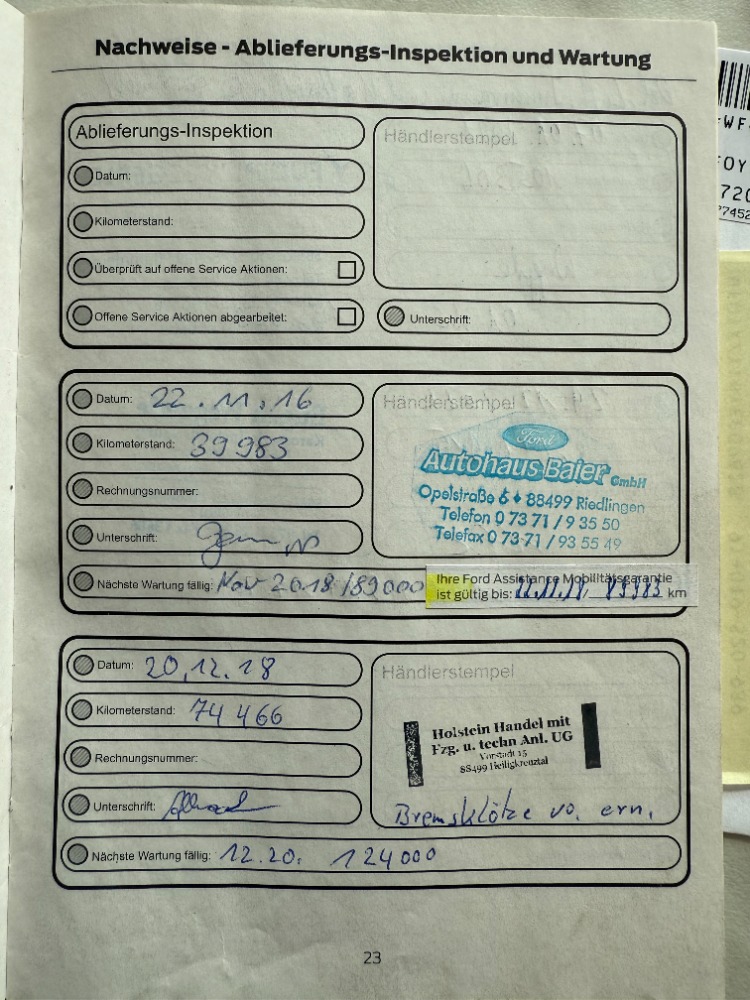 Nachweise - Ablieferungs-Inspektion und Wartung
Ablieferungs-Inspektion
Händlerstempel
Datum:
Kilometerstand:
Überprüft auf offene Service Aktionen:
Offene Service Aktionen abgearbeitet:
Unterschrift:
Datum: 22.11.16
Händlerstempel
Kilometerstand: 39983
Ford
Autohaus Baier GmbH
Opelstraße 6 ♦ 88499 Riedlingen
Telefon 0 73 71 / 9 35 50
Telefax 0 73 71 / 93 55 49
Rechnungsnummer:
Unterschrift:
Nächste Wartung fällig: Nov 2018 / 89000
Ihre Ford Assistance Mobilitätsgarantie
ist gültig bis: 22.11.18, 89983 km
Datum: 20.12.18
Händlerstempel
Kilometerstand: 74 466
Holstein Handel mit
Fzg. u. techn Anl. UG
Vorstadt 15
88499 Heiligkreuztal
Rechnungsnummer:
Unterschrift:
Bremsklötze vo. ern.
Nächste Wartung fällig: 12.20. 124000
23
7452